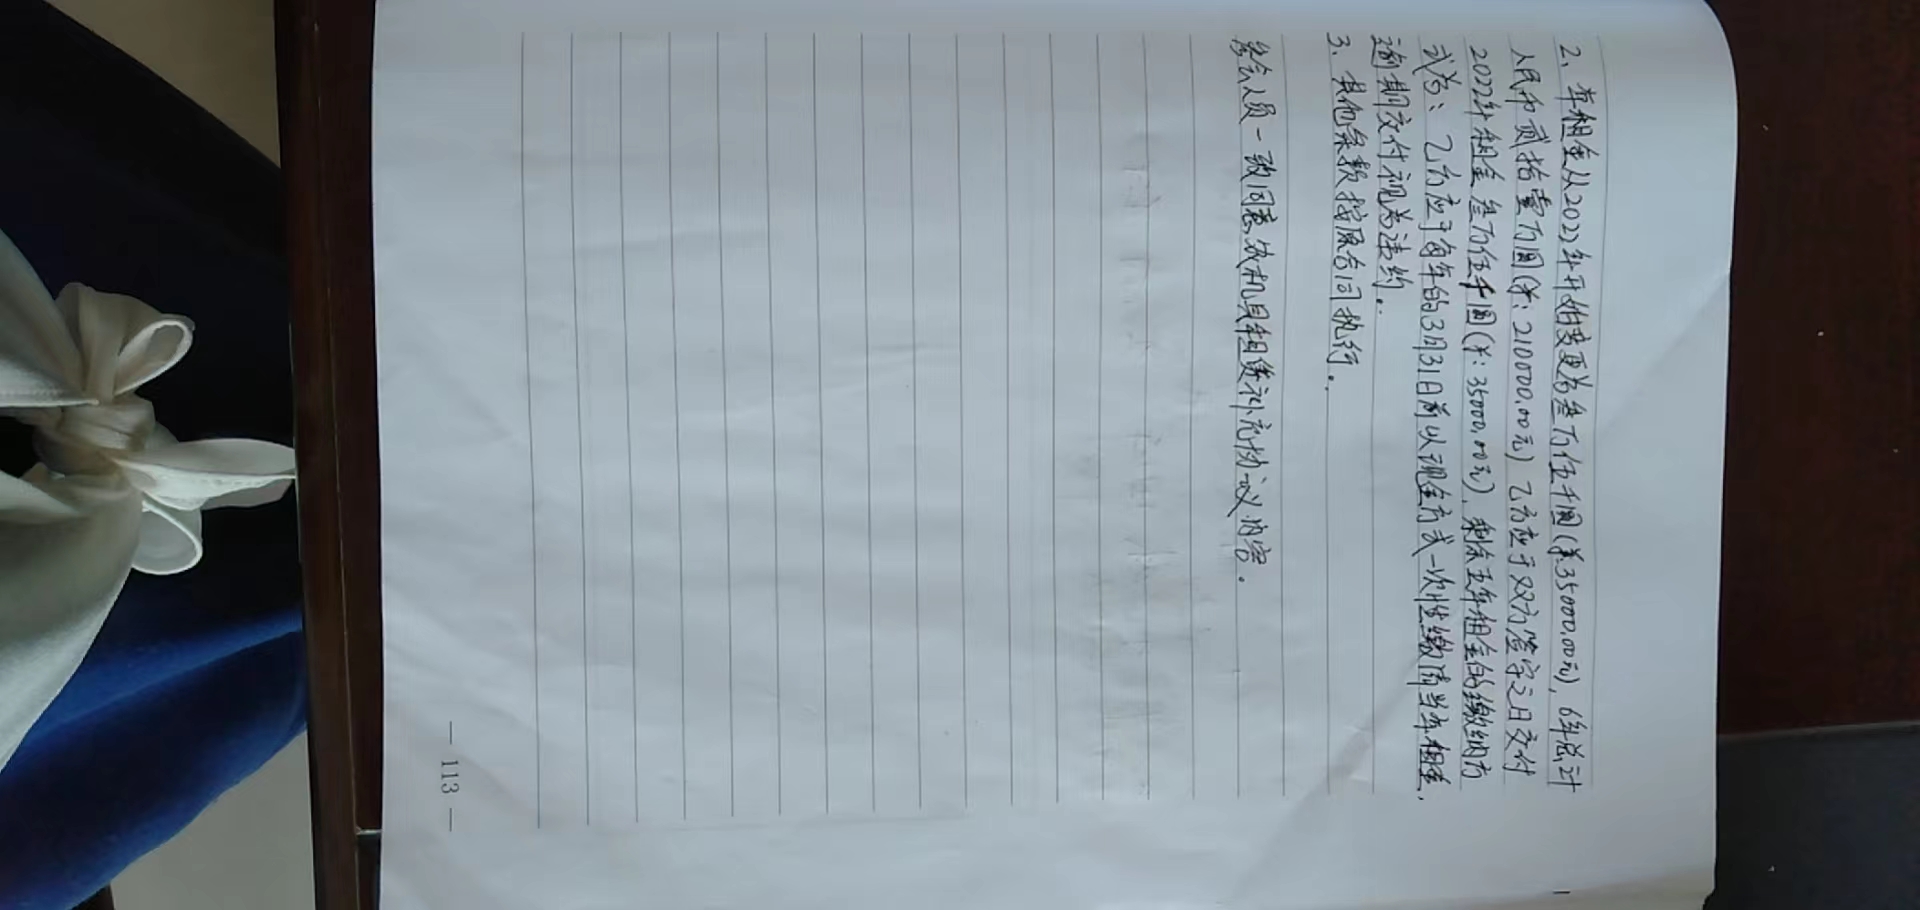 2、年租金从2022年开始变更为叁万伍千圆(¥:35000.00元),6年总计
人民币贰拾壹万圆(¥:210000.00元)乙方应于双方签字之日交付
2022年租金叁万伍千圆(¥:35000.00元),剩余五年租金的缴纳方
式为:乙方应于每年的3月31日前以现金方式一次性缴清当年租金,
逾期交付视为违约.
3、其他条款按原合同执行.
参会人员一致同意农机具租赁补充协议内容.
— 113 —